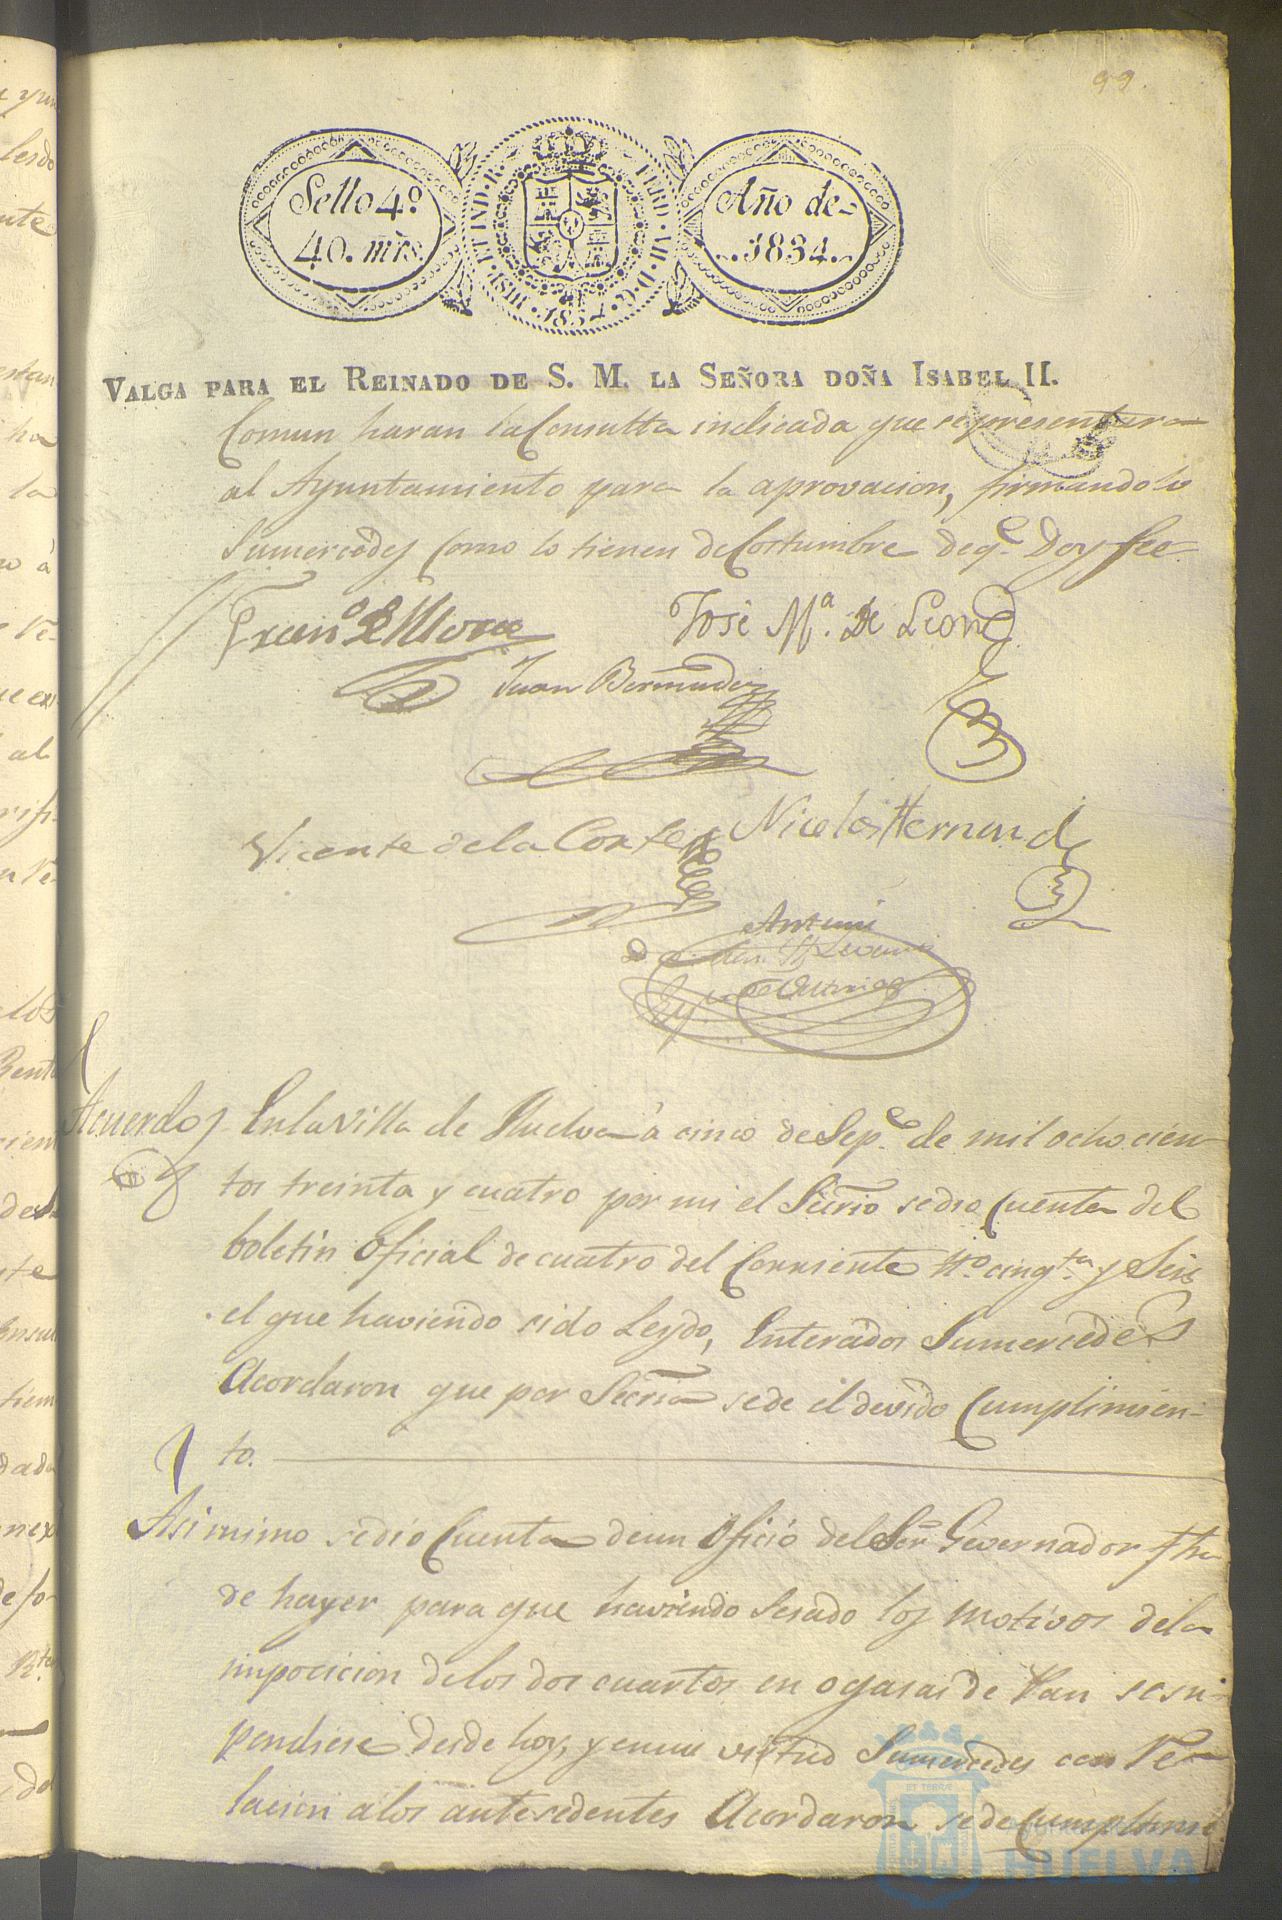 99.
Sello 4º
40. mrs.
HISP. ET IND. R.
FERD. VII. D. G.
1834
Año de
1834.
VALGA PARA EL REINADO DE S. M. LA SEÑORA DOÑA ISABEL II.
Comun haran la Consulta indicada que se presentara
al Ayuntamiento para la aprovacion, firmandolo
Sumercedes Como lo tienen de Costumbre de qe. Doy fee
Franco. de Mora
José Mª. De Leon
Juan Bermudez
Vicente de la Corte
Nicolas Hernand
Antemi
Acuerdo
En la Villa de Huelva à cinco de Sepe. de mil ocho cien-
tos treinta y cuatro por mi el Secrio se dio Cuenta del
boletin Oficial de cuatro del Corriente Nº cinqta. y Seis
el que haviendo sido Leydo, Enterados Sumercedes
Acordaron que por Secria se de el devido Cumplimien-
to.
Asimimo se dio Cuenta de un Oficio del Sor. Governador fha
de hayer para que haviendo Sesado los motivos de la
imposicion de los dos cuartos en ogasas de Pan se sus-
pendiese desde hoy, y en su virtud Sumercedes con Re-
lacion a los antesedentes Acordaron se de Cumplimi
HUELVA